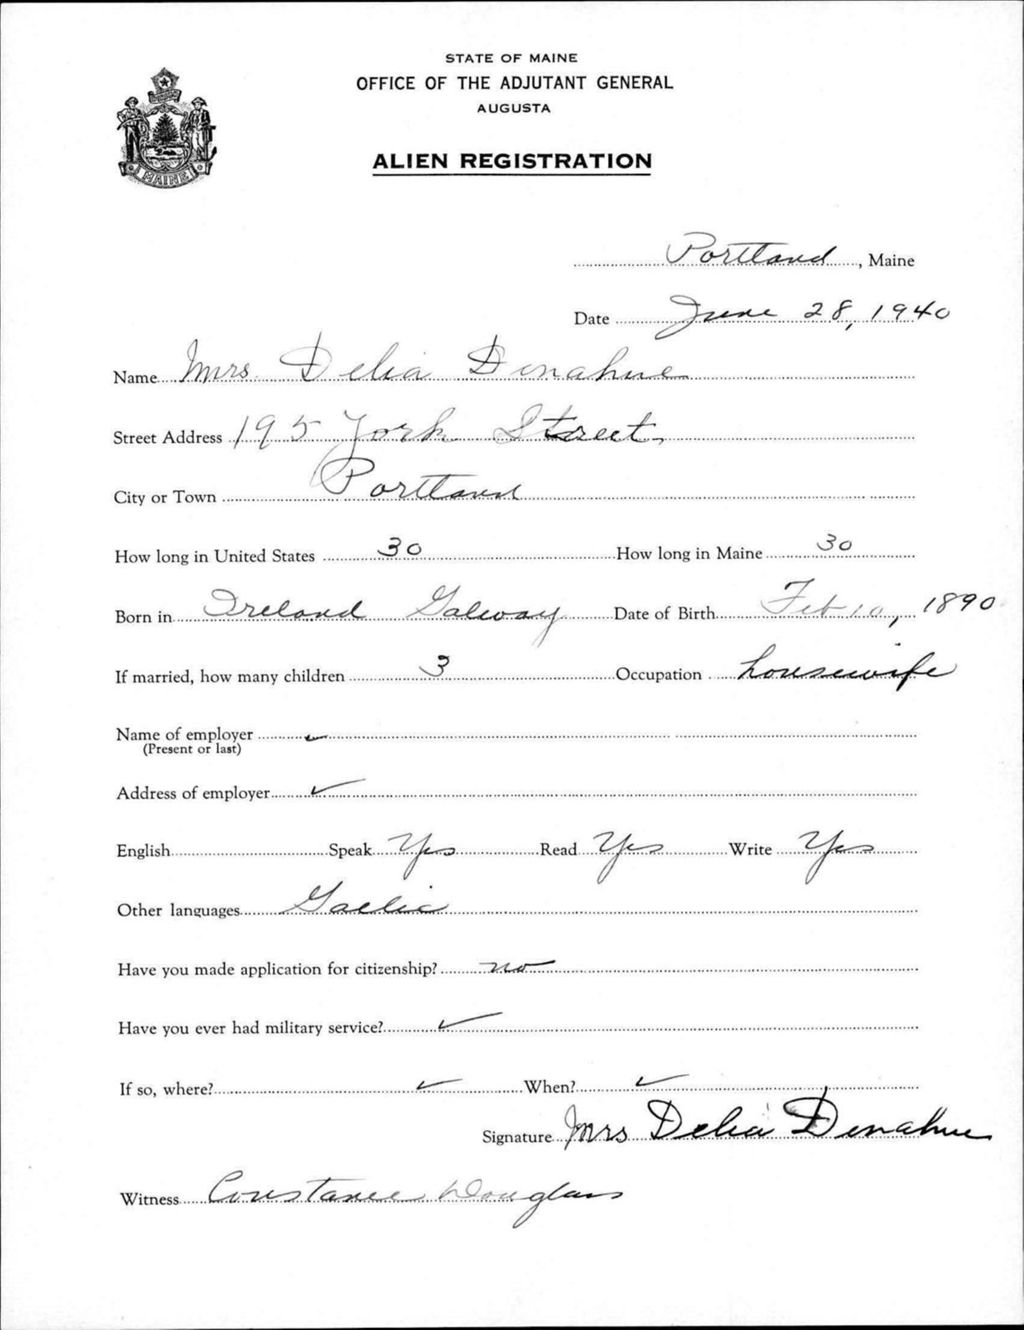 STATE OF MAINE
OFFICE OF THE ADJUTANT GENERAL
AUGUSTA
ALIEN REGISTRATION
MAINE
Portland, Maine
Date June 28, 1940
Name Mrs. Delia Donahue
Street Address 195 York Street,
City or Town Portland
How long in United States 30 How long in Maine 30
Born in Ireland Galway Date of Birth Feb 10, 1890
If married, how many children 3 Occupation housewife
Name of employer ✓
(Present or last)
Address of employer ✓
English Speak Yes Read Yes Write Yes
Other languages Gaelic
Have you made application for citizenship? no
Have you ever had military service? ✓
If so, where? ✓ When? ✓
Signature Mrs Delia Donahue
Witness Constance Douglass